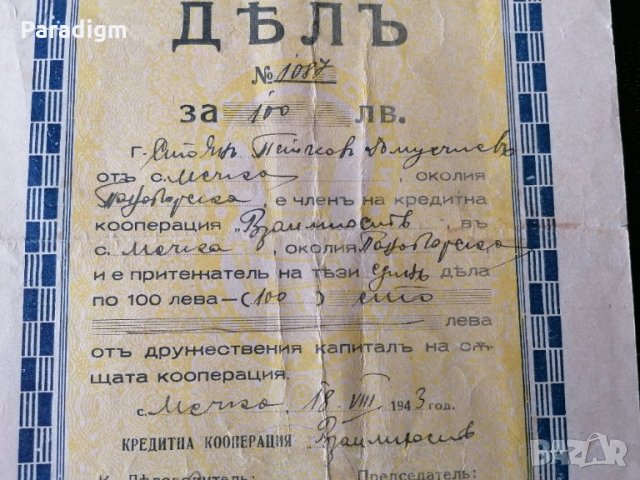 Paradigm
ДѢЛЪ
№ 1087
за 100 лв.
г. Стоян Петков
отъ с. Мечка, околия
е членъ на кредитна
кооперация „Взаимность", въ
с. Мечка, околия
и е притежатель на тѣзи един дѣла
по 100 лева—(100) сто
лева
отъ дружествения капиталъ на сѫ-
щата кооперация.
с. Мечка, 18 VIII 1943 год.
КРЕДИТНА КООПЕРАЦИЯ „Взаимность
Председатель:
BAZAR